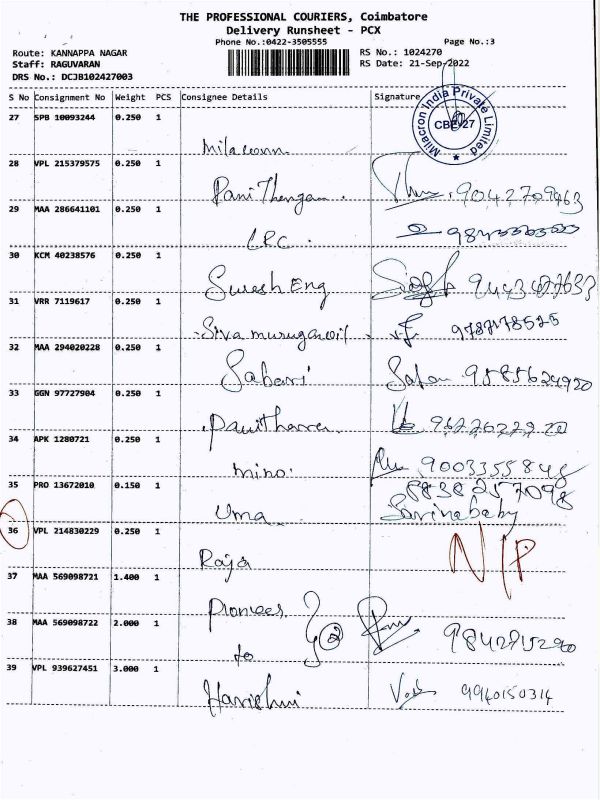 THE PROFESSIONAL COURIERS, Coimbatore
Delivery Runsheet - PCX
Phone No.:0422-3505555 Page No.:3
Route: KANNAPPA NAGAR RS No.: 1024270
Staff: RAGUVARAN RS Date: 21-Sep-2022
DRS No.: DCJB102427003
S No Consignment No Weight PCS Consignee Details Signature
Milacron India Private Limited
CBE-27
27 SPB 10093244 0.250 1
Milacron
28 VPL 215379575 0.250 1
9042709463
29 MAA 286641101 0.250 1
30 KCM 40238576 0.250 1
Suresh Eng
31 VRR 7119617 0.250 1
32 MAA 294020228 0.250 1
Sabari 9585624920
33 GGN 97727904 0.250 1
34 APK 1280721 0.250 1
mino. 9003355848
35 PRO 13672010 0.150 1
8838257098
Uma
36 VPL 214830229 0.250 1
Raja N/P
37 MAA 569098721 1.400 1
Pioneer
38 MAA 569098722 2.000 1
2 9842715290
to
39 VPL 939627451 3.000 1
Harishni 9940150314